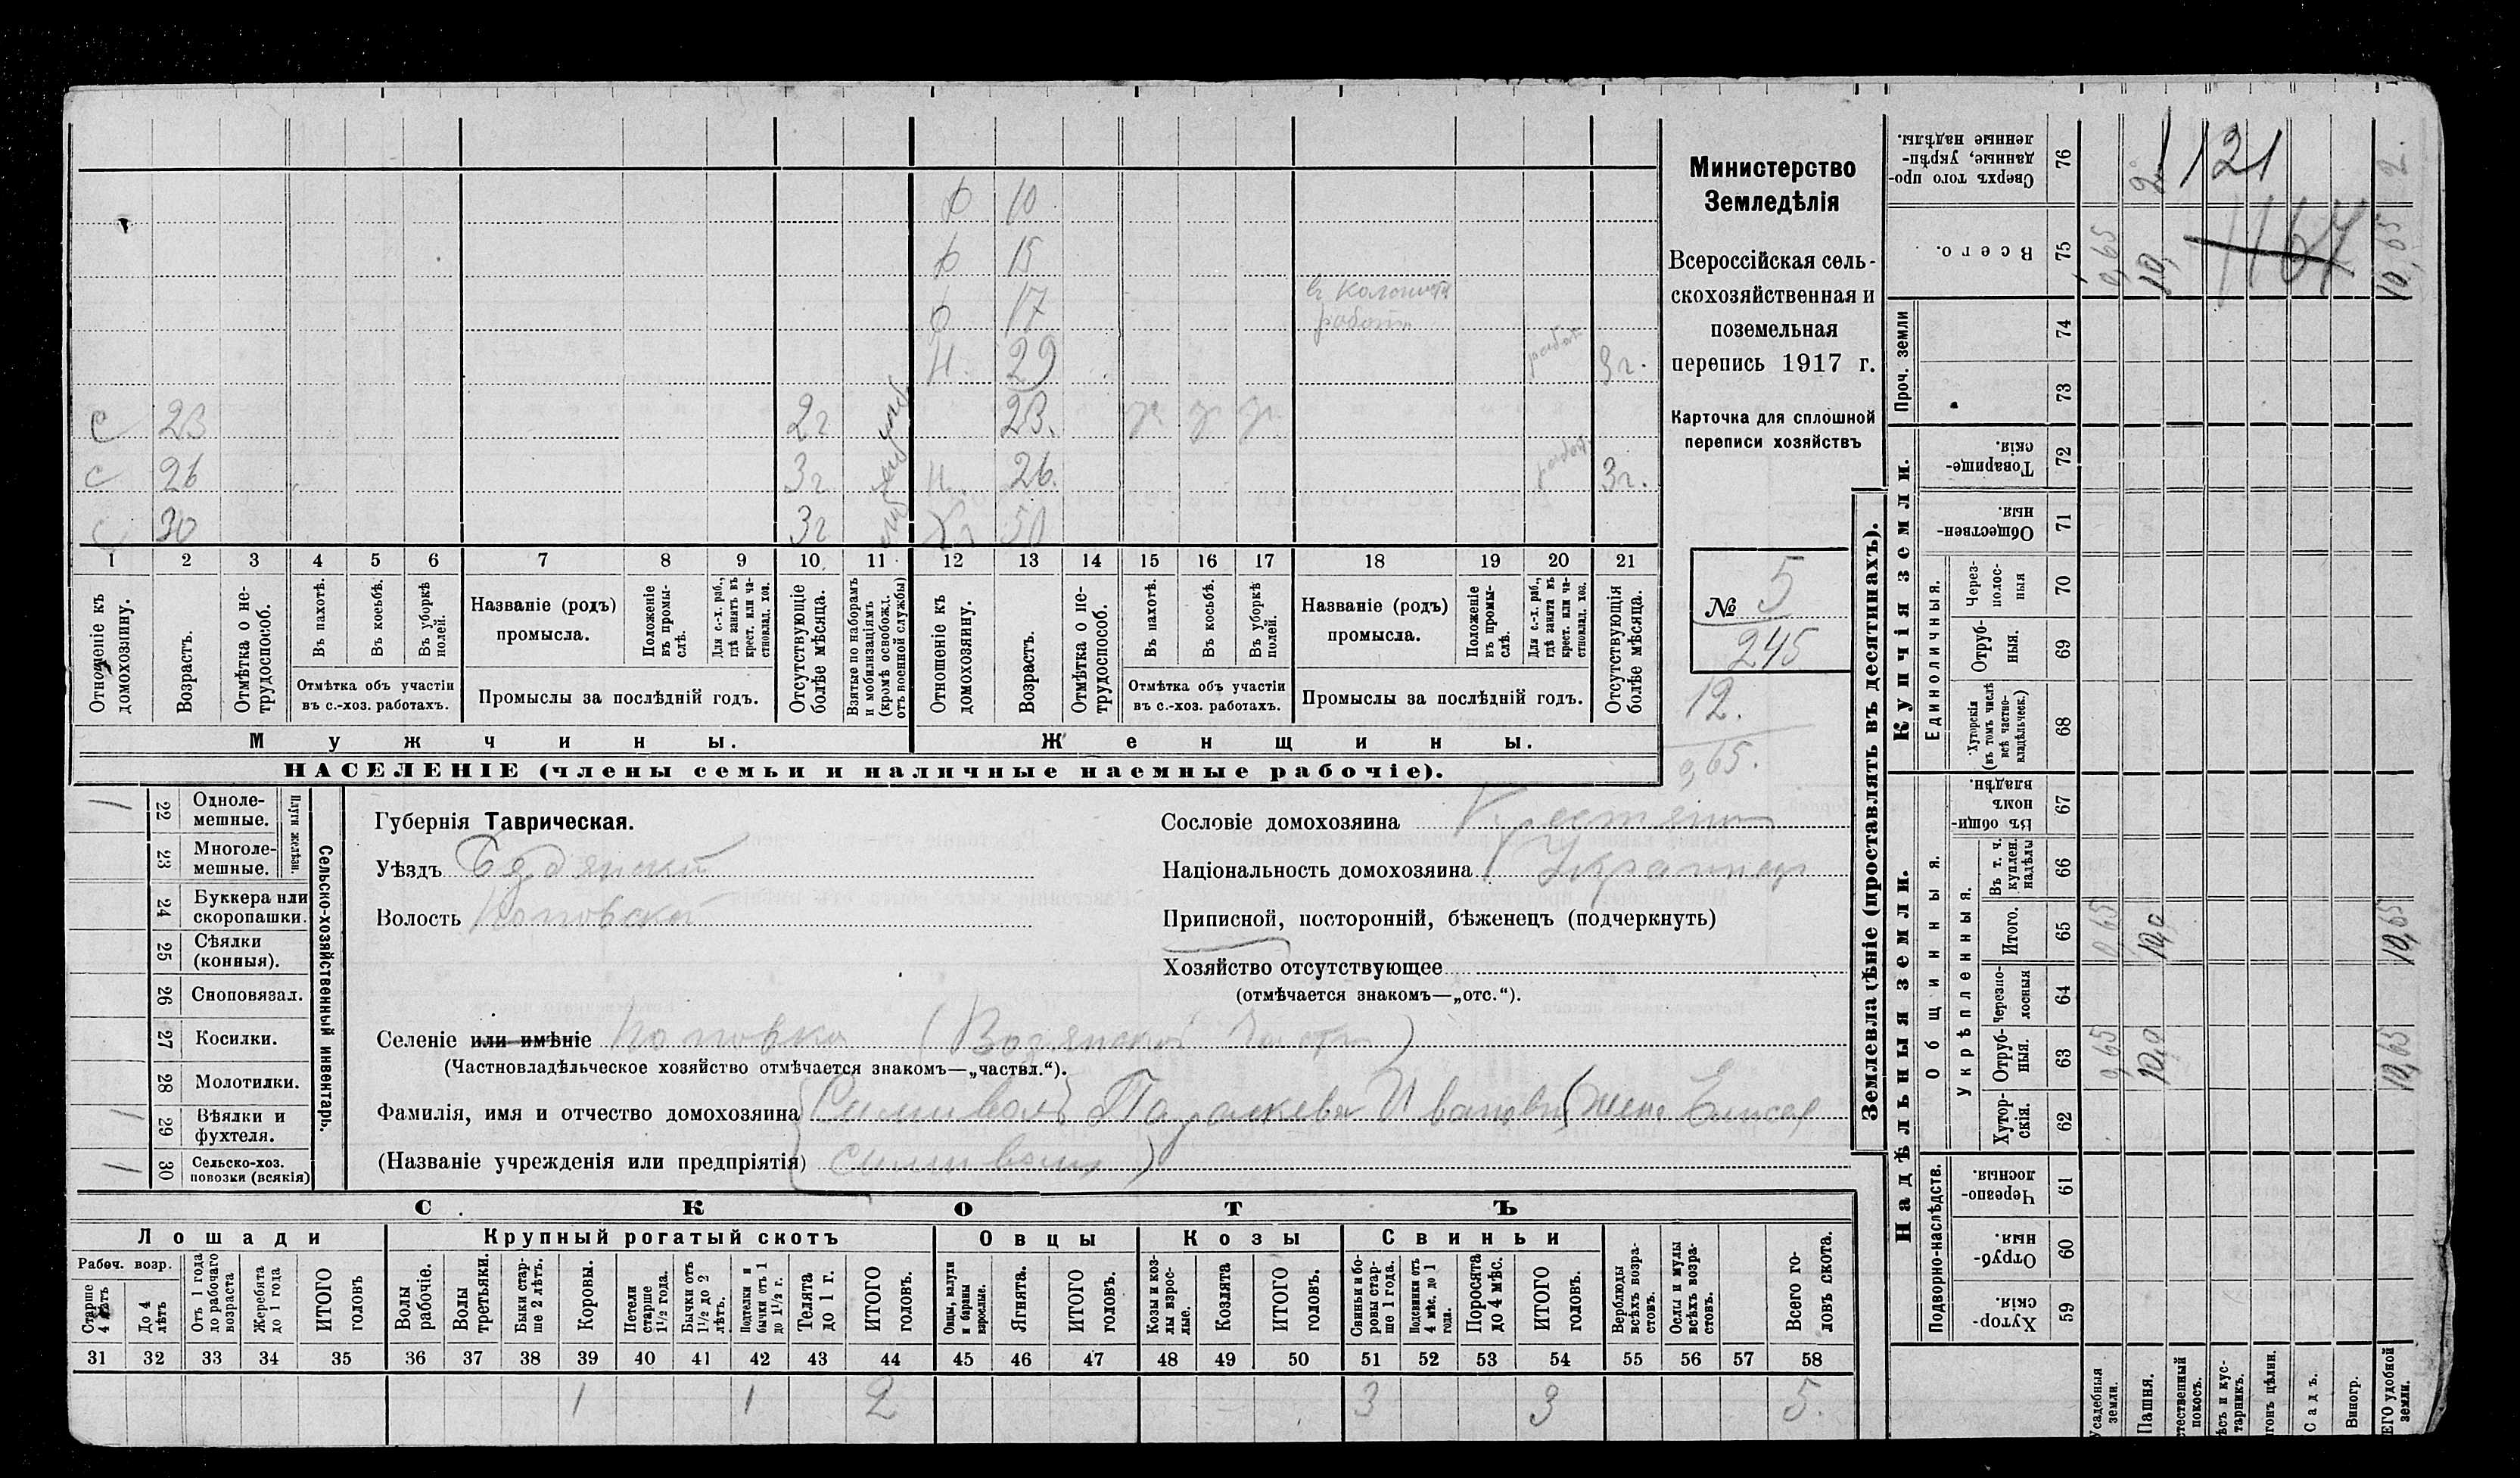 Министерство
Земледѣлія
Всероссійская сель-
скохозяйственная и
поземельная
перепись 1917 г.
Карточка для сплошной
переписи хозяйствъ
№ 5
245
12.
0,65.
10
15
17
Н. 29 3 г.
С 23 2 г 23.
С 26 3 г Н. 26. 3 г.
С 30 3 г 50
1 2 3 4 5 6 7 8 9 10 11 12 13 14 15 16 17 18 19 20 21
Отношеніе къ домохозяину.
Возрастъ.
Отмѣтка о не-трудоспособ.
Въ пахотѣ.
Въ косьбѣ.
Въ уборкѣ полей.
Отмѣтка объ участіи
въ с.-хоз. работахъ.
Названіе (родъ)
промысла.
Положеніе въ промы-слѣ.
Для с.-х. раб., гдѣ занятъ въ крест. или ча-стновлад. хоз.
Промыслы за послѣдній годъ.
Отсутствующіе болѣе мѣсяца.
Взятые по наборамъ и мобилизаціямъ (кромѣ освобожд. отъ военной службы)
Отношеніе къ домохозяину.
Возрастъ.
Отмѣтка о не-трудоспособ.
Въ пахотѣ.
Въ косьбѣ.
Въ уборкѣ полей.
Отмѣтка объ участіи
въ с.-хоз. работахъ.
Названіе (родъ)
промысла.
Положеніе въ промы-слѣ.
Для с.-х. раб., гдѣ занята въ крест. или ча-стновлад. хоз.
Промыслы за послѣдній годъ.
Отсутствующія болѣе мѣсяца.
Мужчины.
Женщины.
НАСЕЛЕНІЕ (члены семьи и наличные наемные рабочіе).
Сельско-хозяйственный инвентарь.
Плуги желѣзн.
22 Одноле-мешные.
23 Многоле-мешные.
24 Буккера или скоропашки.
25 Сѣялки (конныя).
26 Сноповязал.
27 Косилки.
28 Молотилки.
29 Вѣялки и фухтеля.
30 Сельско-хоз. повозки (всякія)
Губернія Таврическая.
Уѣздъ Бердянский
Волость Поповская
Сословіе домохозяина Крестьянин
Національность домохозяина Украинец
Приписной, посторонній, бѣженецъ (подчеркнуть)
Хозяйство отсутствующее
(отмѣчается знакомъ—„отс.“).
Селеніе или имѣніе Поповка
(Частновладѣльческое хозяйство отмѣчается знакомъ—„частвл.“).
Фамилія, имя и отчество домохозяина Параскева Ивановна
(Названіе учрежденія или предпріятія)
СКОТЪ
Лошади
Крупный рогатый скотъ
Овцы
Козы
Свиньи
Рабоч. возр.
Старше 4 лѣтъ
До 4 лѣтъ
Отъ 1 года до рабочаго возраста
Жеребята до 1 года
ИТОГО головъ
Волы рабочіе.
Волы третьяки.
Быки стар-ше 2 лѣтъ.
Коровы.
Нетели старше 1½ года.
Бычки отъ 1½ до 2 лѣтъ.
Подтелки и бычки отъ 1 до 1½ г.
Телята до 1 г.
ИТОГО головъ.
Овцы, валухи и бараны взрослые.
Ягнята.
ИТОГО головъ.
Козы и коз-лы взрос-лые.
Козлята
ИТОГО головъ.
Свиньи и бо-ровы стар-ше 1 года.
Подсвинки отъ 4 мѣс. до 1 года.
Поросята до 4 мѣс.
ИТОГО головъ.
Верблюды всѣхъ возра-стовъ.
Ослы и мулы всѣхъ возра-стовъ.
Всего го-ловъ скота.
31 32 33 34 35 36 37 38 39 40 41 42 43 44 45 46 47 48 49 50 51 52 53 54 55 56 57 58
1 1 2 3 3 5.
Землевладѣніе (проставлять въ десятинахъ).
Надѣльныя земли.
Купчія земли.
Проч. земли
Подворно-наслѣдств.
Общинныя.
Укрѣпленныя.
Единоличныя.
Хутор-скія. 59
Отруб-ныя. 60
Черезпо-лосныя. 61
Хутор-скія. 62
Отруб-ныя. 63
Черезпо-лосныя 64
Итого. 65
Въ т. ч. куплен. надѣлы 66
Въ общи-номъ владѣн. 67
Хуторскія (въ томъ числѣ всѣ частно-владѣльческ.) 68
Отруб-ныя. 69
Через-полос-ныя 70
Обществен-ныя 71
Товарище-скія. 72
73
74
Всего. 75
Сверхъ того про-данные, укрѣп-ленные надѣлы. 76
0,65 10,0 10,65
0,65 10,0 10,65
0,65 10, 10,65
2 2.
1121
1167
Усадебныя земли.
Пашня.
Естественный покосъ.
Лѣсъ и кус-тарникъ.
Выгонъ цѣлин.
Садъ.
Виногр.
ВСЕГО удобной земли.